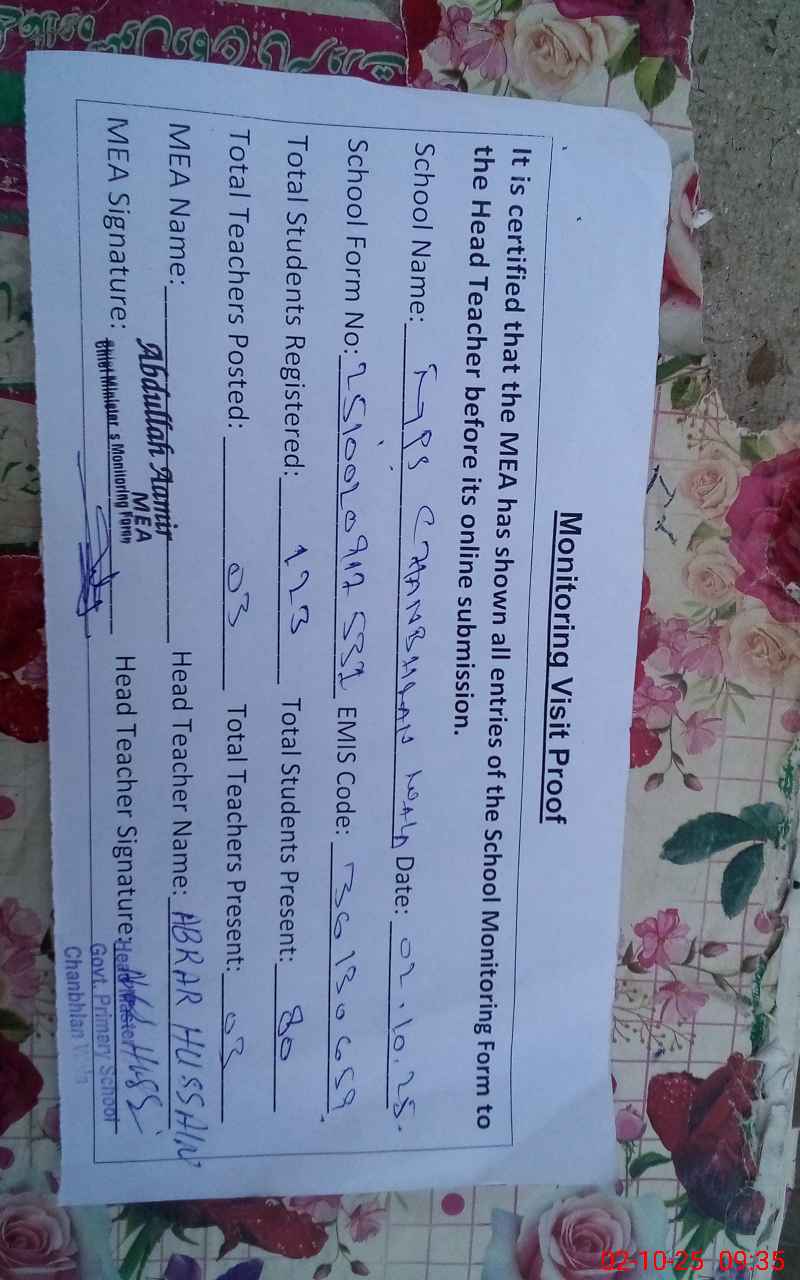 Monitoring Visit Proof
It is certified that the MEA has shown all entries of the School Monitoring Form to
the Head Teacher before its online submission.
School Name: GPS CHANBHLAN WALA Date: 02.10.25.
School Form No: EMIS Code: 36130659
Total Students Registered: 123 Total Students Present: 80
Total Teachers Posted: 03 Total Teachers Present: 03
MEA Name: Abdullah Aamir Head Teacher Name: ABRAR HUSSAIN
MEA
MEA Signature: Chief Minister's Monitoring Force Head Teacher Signature: Head Master
Govt. Primary School
Chanbhlan
02-10-25 09:35